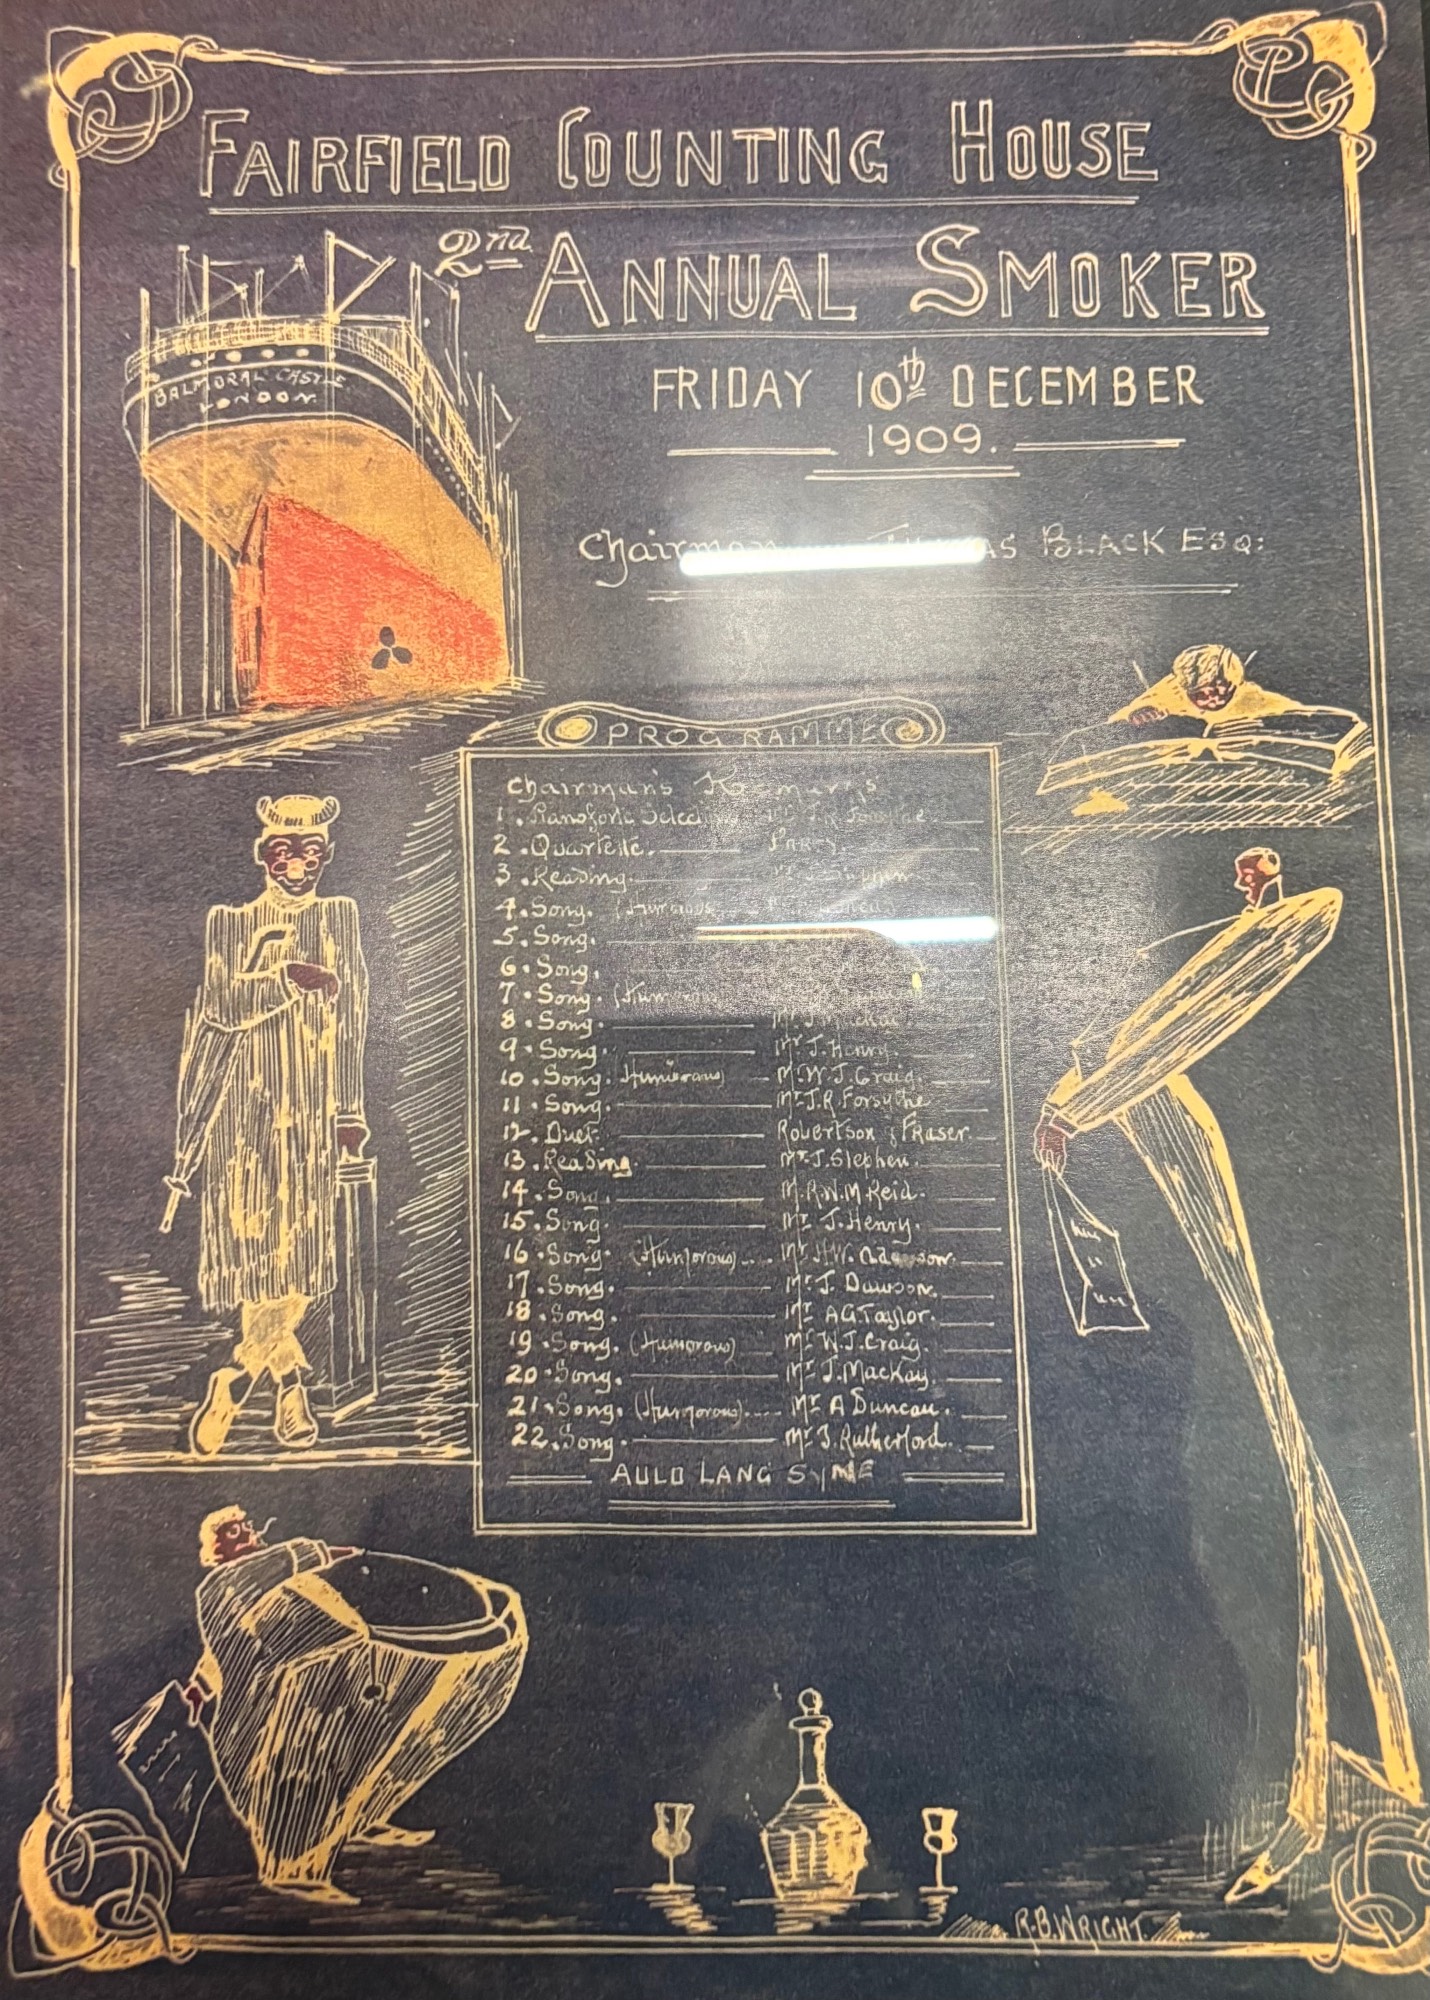 FAIRFIELD COUNTING HOUSE
2nd ANNUAL SMOKER
FRIDAY 10th DECEMBER
1909.
Chairman BLACK ESQ:
BALMORAL CASTLE
LONDON
PROGRAMME
Chairman's Remarks
1. Pianoforte
2. Quartette. Party.
3. Reading.
4. Song. (Humorous)
5. Song.
6. Song.
7. Song. (Humorous)
8. Song. Mr J.
9. Song. Mr J. Henry.
10. Song. Humorous) Mr W. J. Craig.
11. Song. Mr J. R. Forsythe
12. Duet. Robertson & Fraser.
13. Reading. Mr J. Stephen.
14. Song. M. R. W. M Reid.
15. Song. Mr J. Henry.
16. Song. (Humorous) Mr
17. Song. Mr J. Dawson.
18. Song. Mr A G. Taylor.
19. Song. (Humorous) Mr W. J. Craig.
20. Song. Mr J. MacKay.
21. Song. (Humorous) Mr A Duncan.
22. Song. Mr J. Rutherford.
AULD LANG SYNE
R. B. WRIGHT.